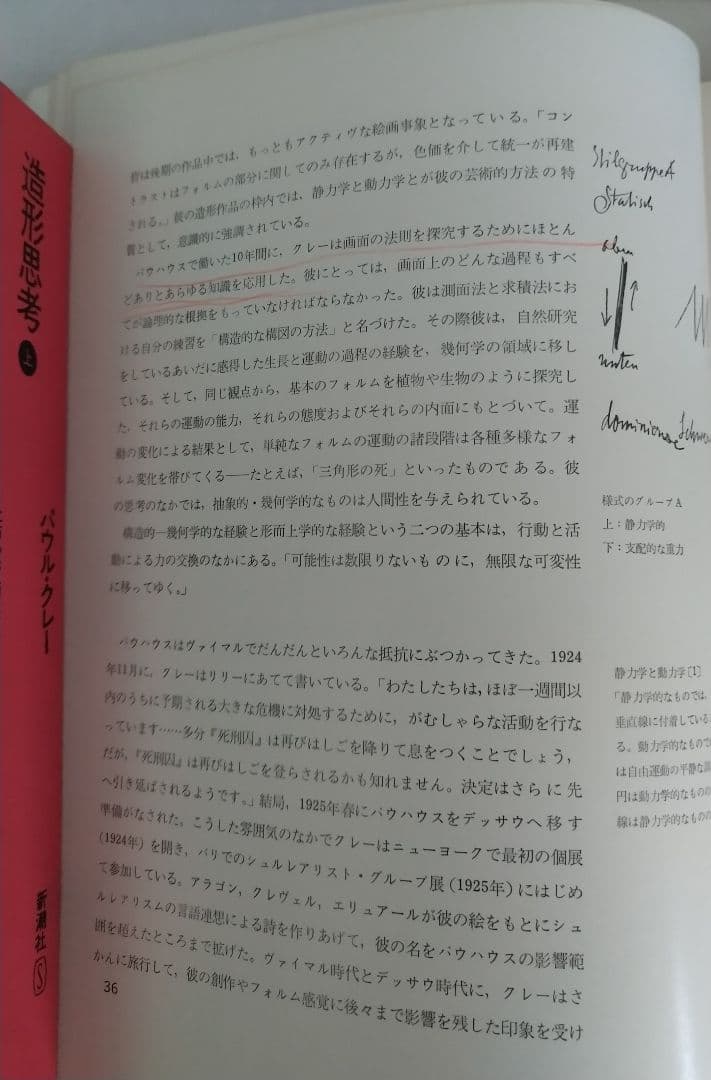 造形思考 上
パウル・クレー
新潮社 S
彼は後期の作品中では，もっともアクティヴな絵画事象となっている。「コン
トラストはフォルムの部分に関してのみ存在するが，色価を介して統一が再建
される。」彼の造形作品の枠内では，静力学と動力学とが彼の芸術的方法の特
質として，意識的に強調されている。
バウハウスで働いた10年間に，クレーは画面の法則を探究するためにほとん
どありとあらゆる知識を応用した。彼にとっては，画面上のどんな過程もすべ
てが論理的な根拠をもっていなければならなかった。彼は測面法と求積法にお
ける自分の練習を「構造的な構図の方法」と名づけた。その際彼は，自然研究
をしているあいだに感得した生長と運動の過程の経験を，幾何学の領域に移し
ている。そして，同じ観点から，基本のフォルムを植物や生物のように探究し
た，それらの運動の能力，それらの態度およびそれらの内面にもとづいて。運
動の変化による結果として，単純なフォルムの運動の諸段階は各種多様なフォ
ルム変化を帯びてくる——たとえば，「三角形の死」といったものである。彼
の思考のなかでは，抽象的・幾何学的なものは人間性を与えられている。
構造的―幾何学的な経験と形而上学的な経験という二つの基本は，行動と活
動による力の交換のなかにある。「可能性は数限りないものに，無限な可変性
に移ってゆく。」
バウハウスはヴァイマルでだんだんといろんな抵抗にぶつかってきた。1924
年11月に，クレーはリリーにあてて書いている。「わたしたちは，ほぼ一週間以
内のうちに予期される大きな危機に対処するために，がむしゃらな活動を行な
っています……多分『死刑囚』は再びはしごを降りて息をつくことでしょう，
だが，『死刑囚』は再びはしごを登らされるかも知れません。決定はさらに先
へ引き延ばされるようです。」結局，1925年春にバウハウスをデッサウへ移す
準備がなされた。こうした雰囲気のなかでクレーはニューヨークで最初の個展
（1924年）を開き，パリでのシュルレアリスト・グループ展（1925年）にはじめ
て参加している。アラゴン，クレヴェル，エリュアールが彼の絵をもとにシュ
ルレアリスムの言語連想による詩を作りあげて，彼の名をバウハウスの影響範
囲を越えたところまで拡げた。ヴァイマル時代とデッサウ時代に，クレーはさ
かんに旅行して，彼の創作やフォルム感覚に後々まで影響を残した印象を受け
36
Stilgruppe A
Statisch
oben
unten
dominierende Schwer
様式のグループA
上：静力学的
下：支配的な重力
静力学と動力学［1］
「静力学的なものでは，
垂直線に付着している
る。動力学的なもので
は自由運動の平静な調
円は動力学的なものの
線は静力学的なものの